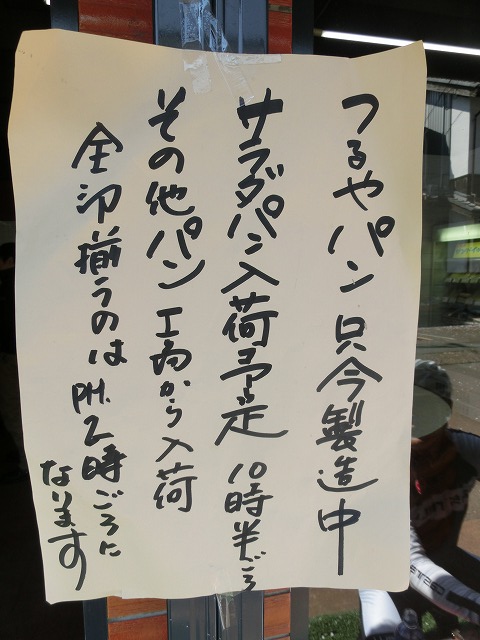 つるやパン只今製造中
サラダパン入荷予定 10時半ごろ
その他パン 工場から入荷
全部揃うのは PM.2時ごろに
なります